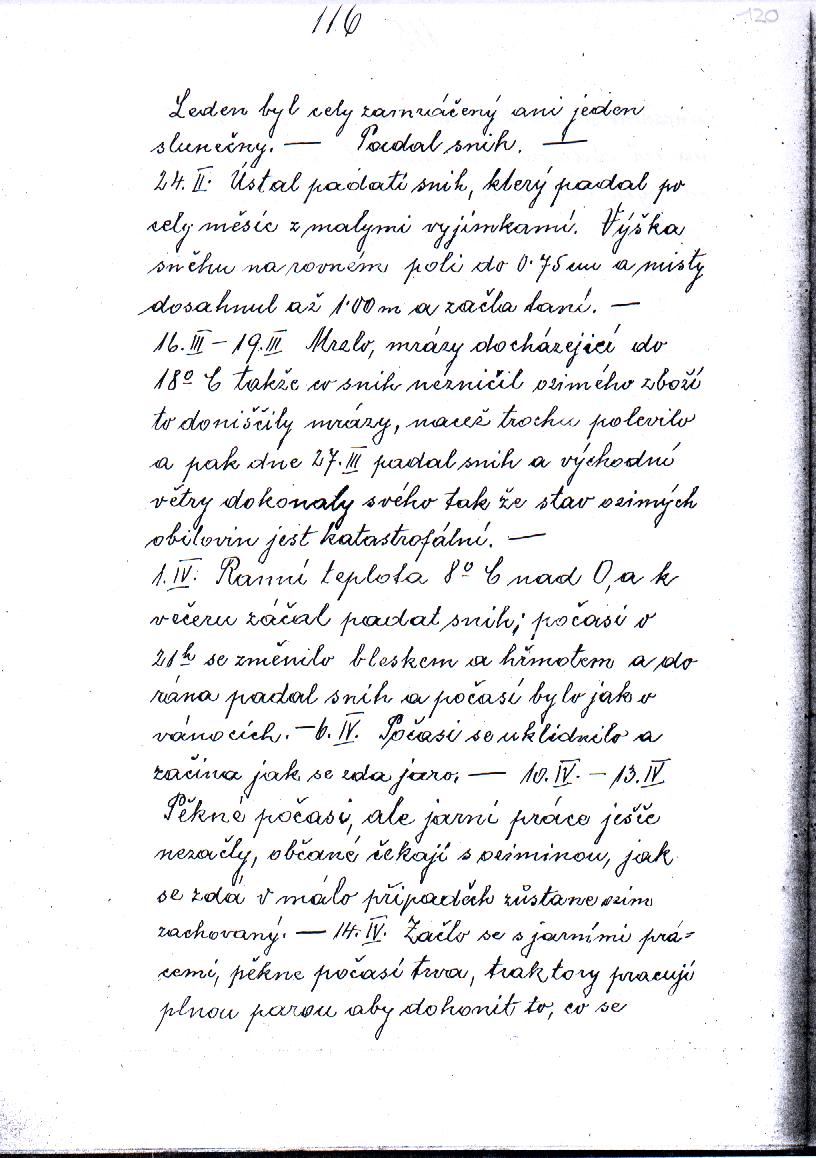 116
120
Leden byl cely zamračený ani jeden
slunečny. — Padal snih. —
24. II. Ústal padati snih, který padal po
cely měsíc z malymi vyjímkamí. Výška
sněhu na rovném poli do 0·75 cm a misty
dosahnul až 1·00 m a začla taní. —
16. III – 19. III Mrzlo, mrázy docházejicí do
18º C takže co snih nezničil ozimého zboží
to doniščily mrázy, nacež trochu polevilo
a pak dne 27. III padal snih a východní
větry dokonaly svého tak že stav ozimých
obilovin jest katastrofální. —
1. IV. Ranní teplota 8º C nad 0, a k
večeru záčal padat snih; počasí v
21h se změnilo bleskem a hřmotem a do
rána padal snih a počasí bylo jako v
vánocích. — 6. IV. Počasi se uklidnilo a
začína jak se zda jaro. — 10. IV. – 13. IV
Pěkné počasi, ale jarní práce ješče
nezačly, občané čekají s oziminou, jak
se zdá v málo připaděch zůstane ozim
zachovaný. — 14. IV. Začlo se s jarními prá=
cemi, pěkne počasí trva, traktory pracují
plnou parou aby dohonit to, co se